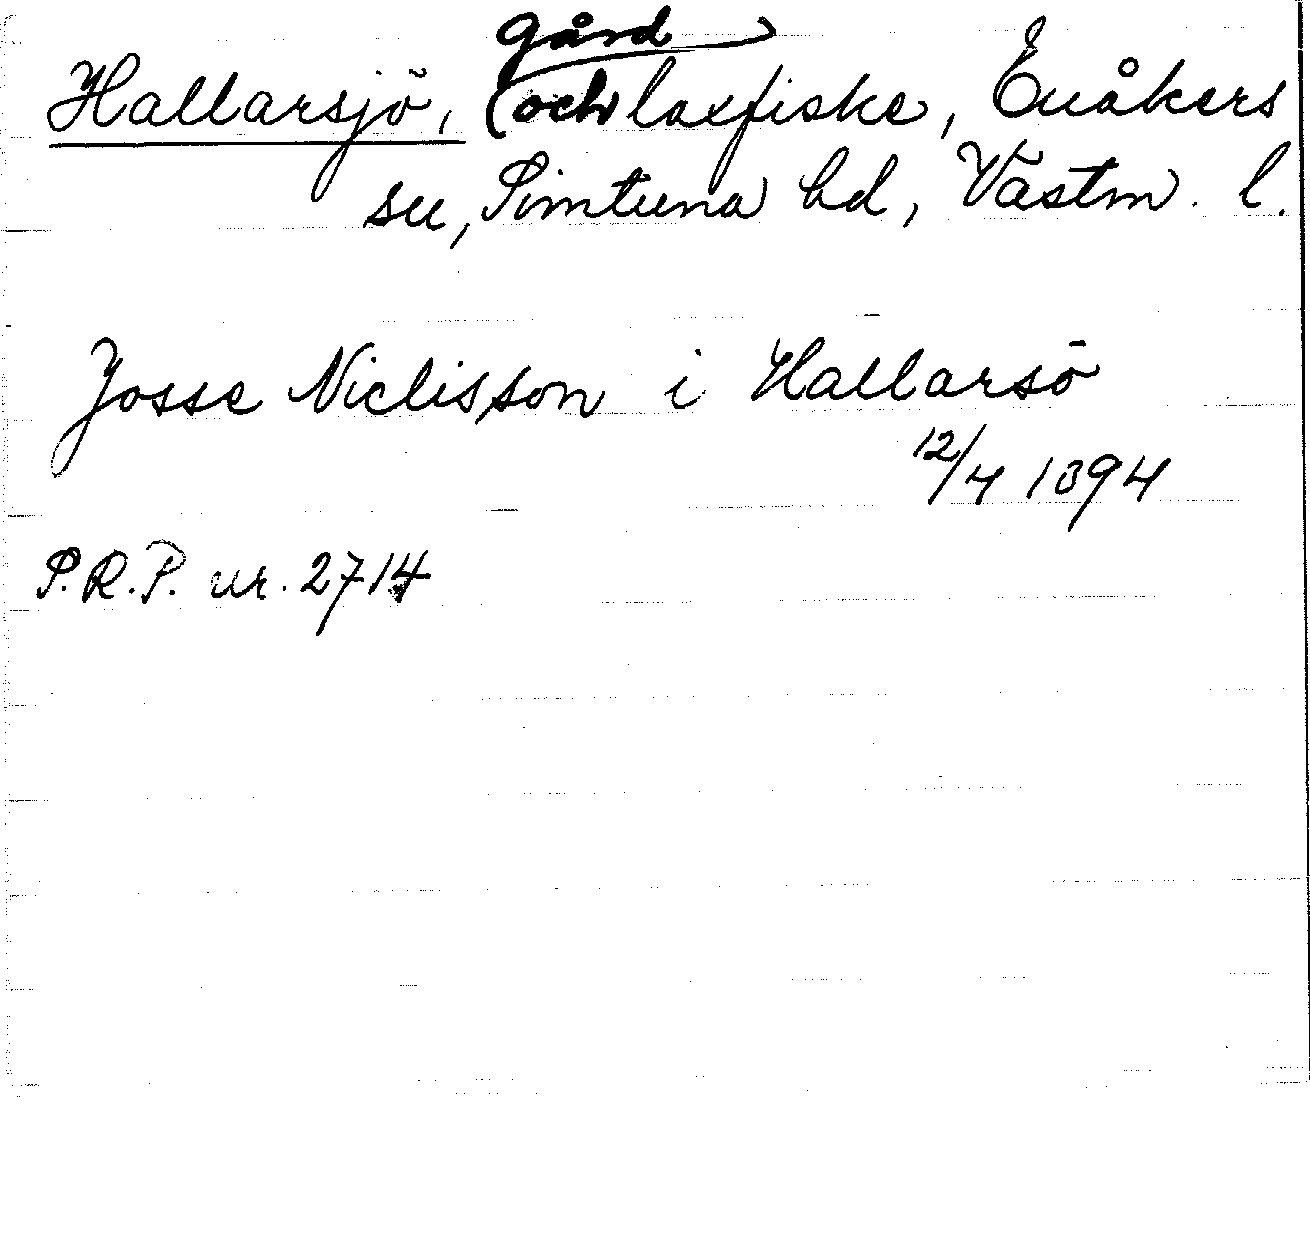 gård
Hallarsjö, (och laxfiske, Enåkers
sn, Simtuna hd, Västm. l.
Josse Niclisson i Hallarsö
12/4 1394
S.R.P. nr. 2714